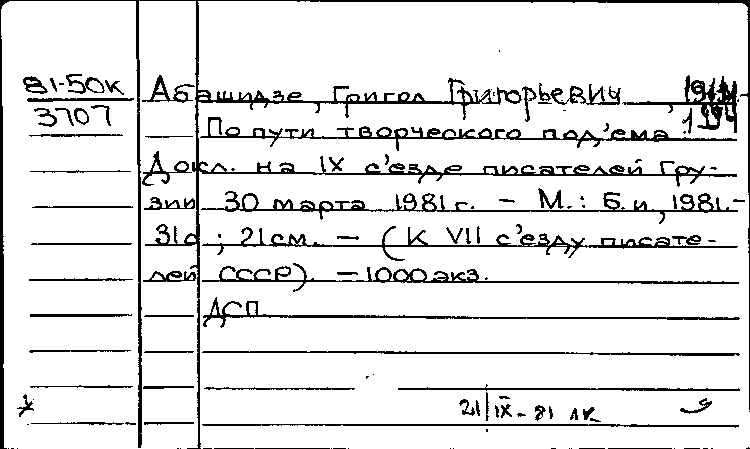 81-50к Абашидзе, Григол Григорьевич,
3707 По пути творческого под'ема:
Докл. на IX с'езде писателей Гру-
зии 30 марта 1981 г. - М.: Б.и, 1981.-
31с ; 21 см. - (К VII с'езду писате-
лей СССР). - 1000 экз.
ДСП
21/IX-81